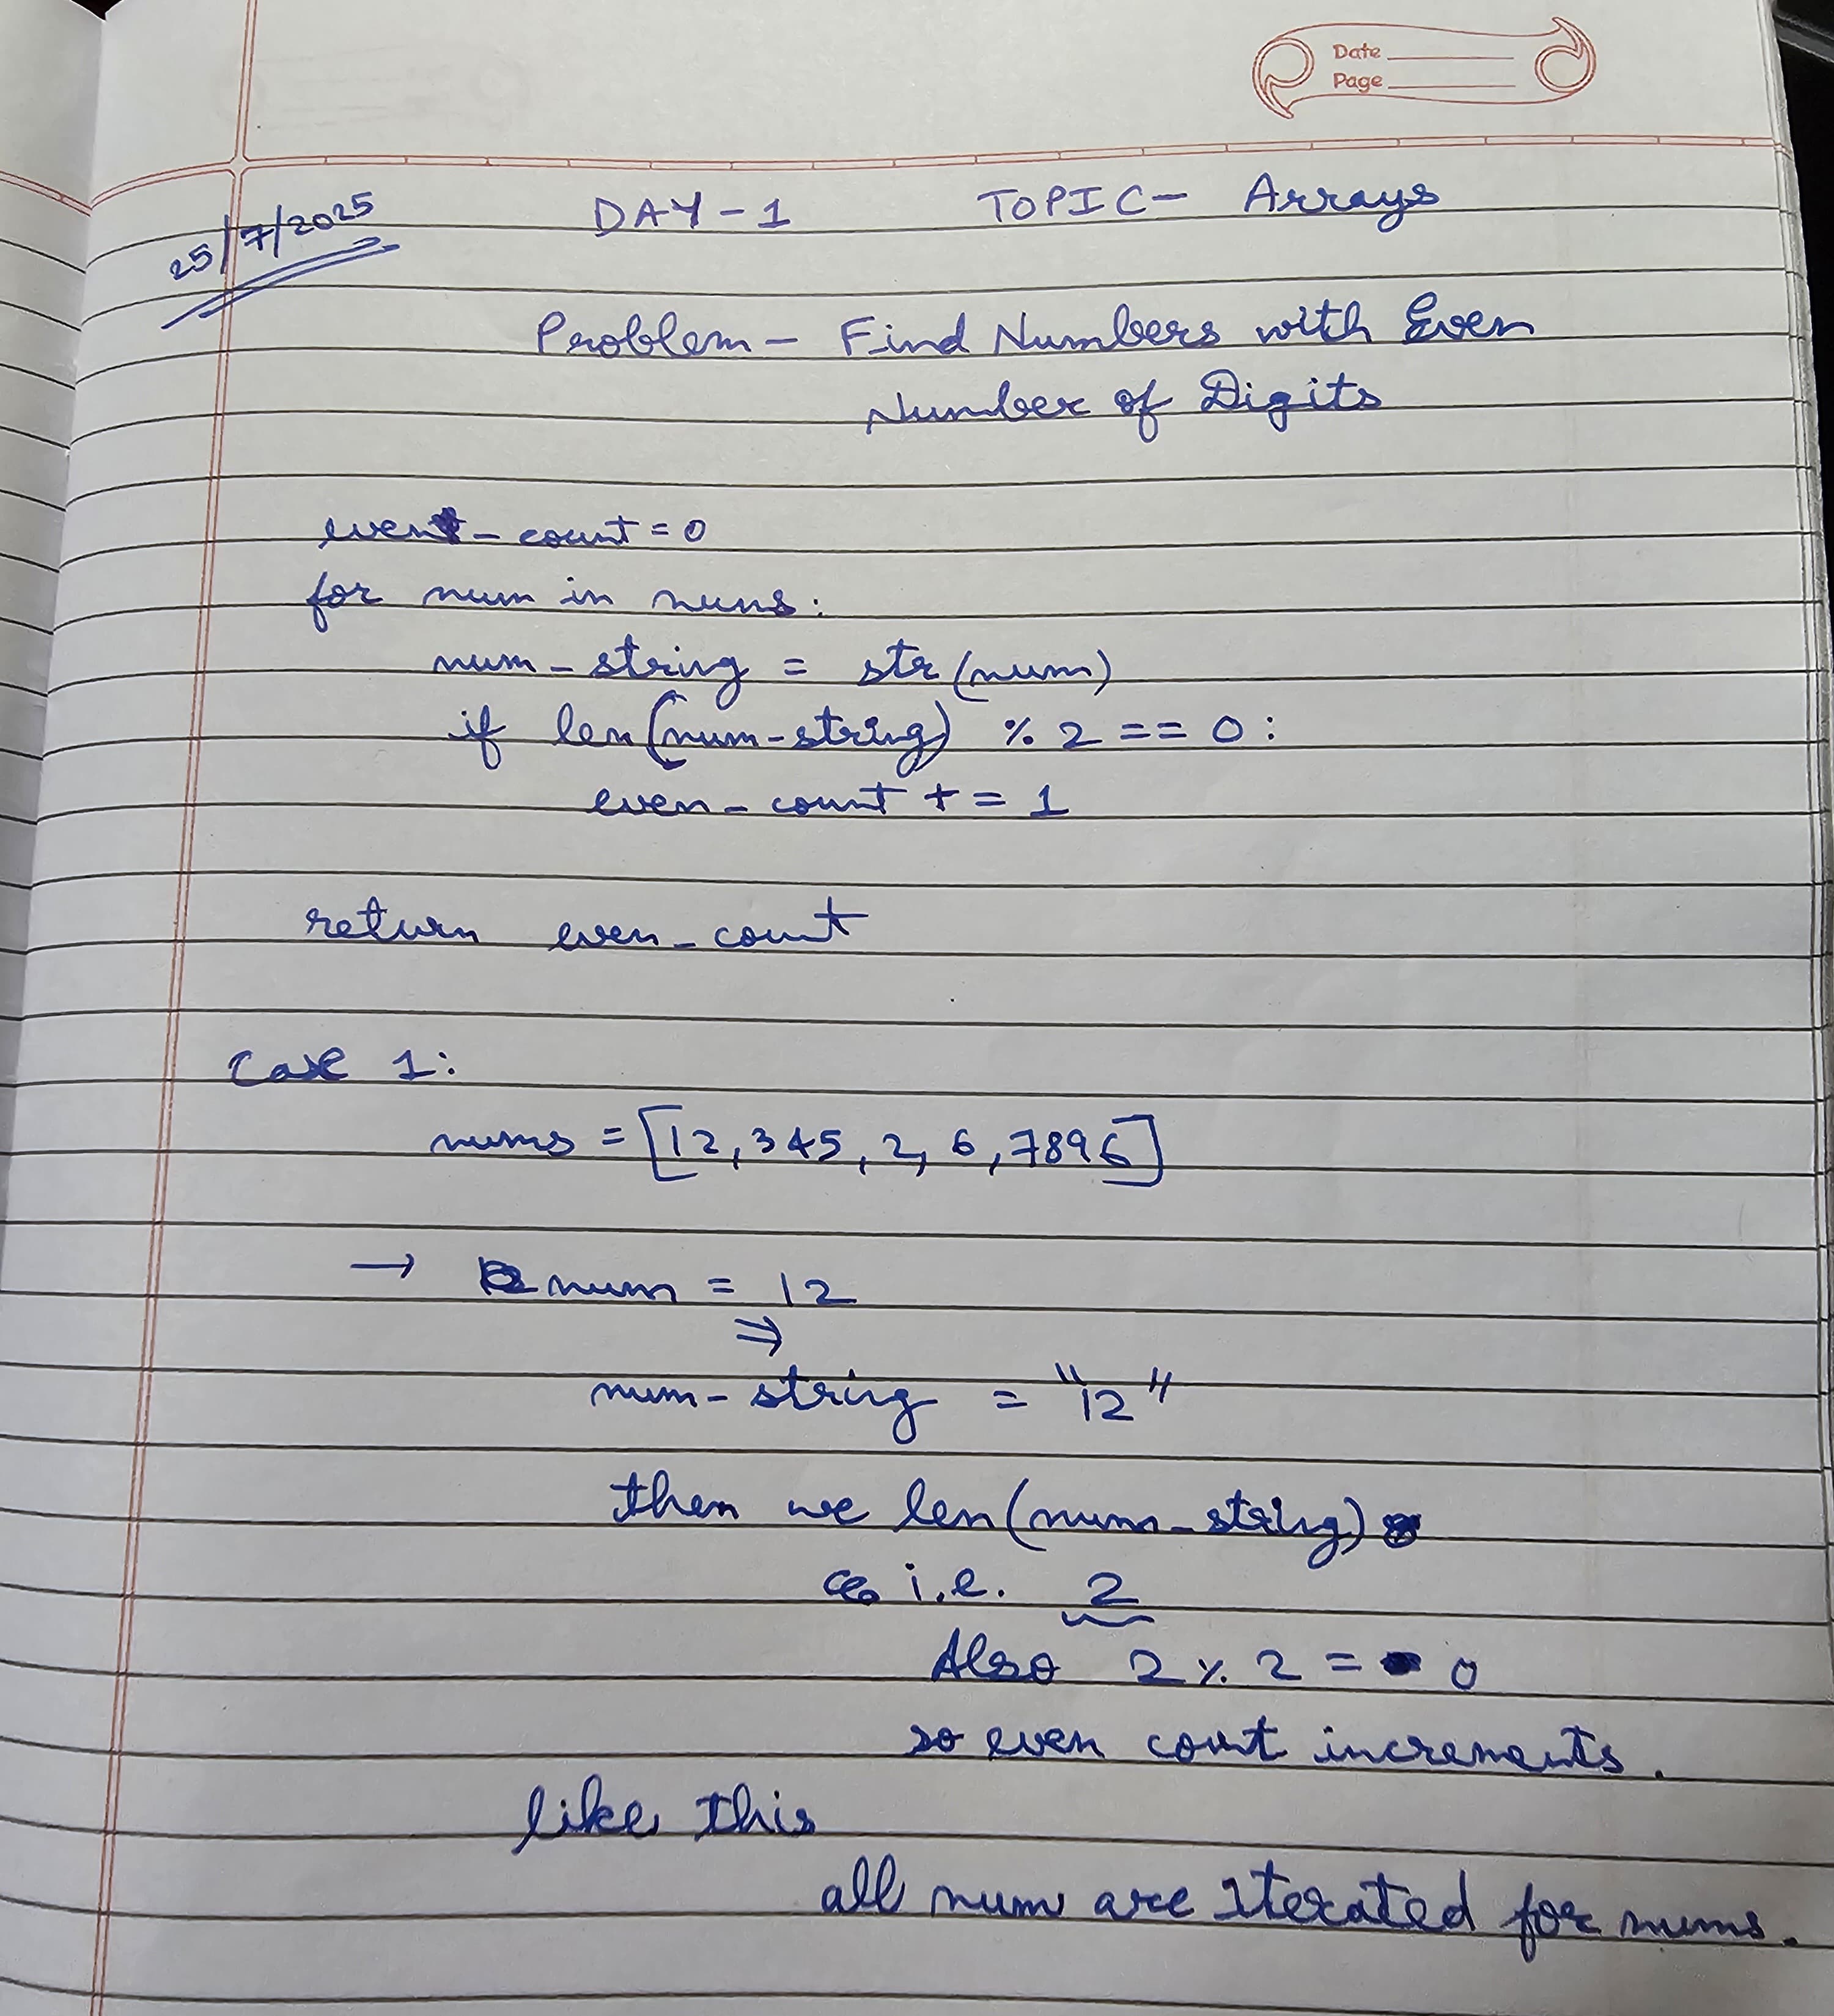 Date
Page
25/7/2025
DAY-1 TOPIC- Arrays
Problem- Find Numbers with Even
Number of Digits
even_count=0
for num in nums:
num_string = str(num)
if len(num_string) % 2 == 0:
even_count += 1
return even_count
Case 1:
nums = [12,345,2,6,7896]
→ num = 12
⇒
num_string = "12"
then we len(num_string)
i.e. 2
Also 2 % 2 = 0
so even count increments.
like this
all num are iterated for nums.